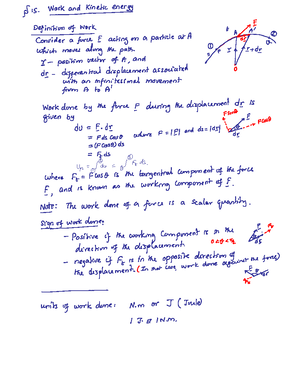 §15. Work and Kinetic energy
Definition of Work
Consider a force F acting on a particle at A
which moves along the path
r – position vector of A, and
dr – differential displacement associated
with an infinitesimal movement
from A to A'
Work done by the force F during the displacement dr is
given by
dU = F · dr
= F ds cosθ where F = |F| and ds = |dr|
= (F cosθ) ds
= Ft ds
where Ft = F cosθ is the tangential component of the force
F, and is known as the working component of F.
Note: The work done of a force is a scalar quantity.
Sign of work done:
– Positive if the working component is in the
direction of the displacement.
– negative if Ft is in the opposite direction of
the displacement. (In our case, work done against the force)
Units of work done: N.m or J (Joule)
1 J = 1 N.m.